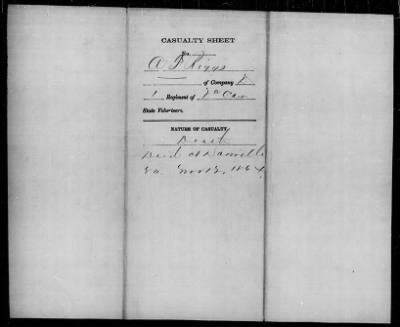 CASUALTY SHEET
No.
A F Riggs
of Company F
1 Regiment of Va Cav
State Volunteers.
NATURE OF CASUALTY.
Death
Died at Danville
Va Nov 2, 1864